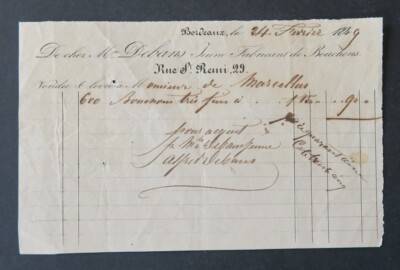 Bordeaux, le 24 Février 1849
De chez Mme Debans Jeune Fabricant de Bouchons
Rue St. Remi, 29.
Vendu & livré à Monsieur de Marcellus
600 Bouchons très fins à 90
pour acquit
p. Mme Debans Jeune
Alfred Debans